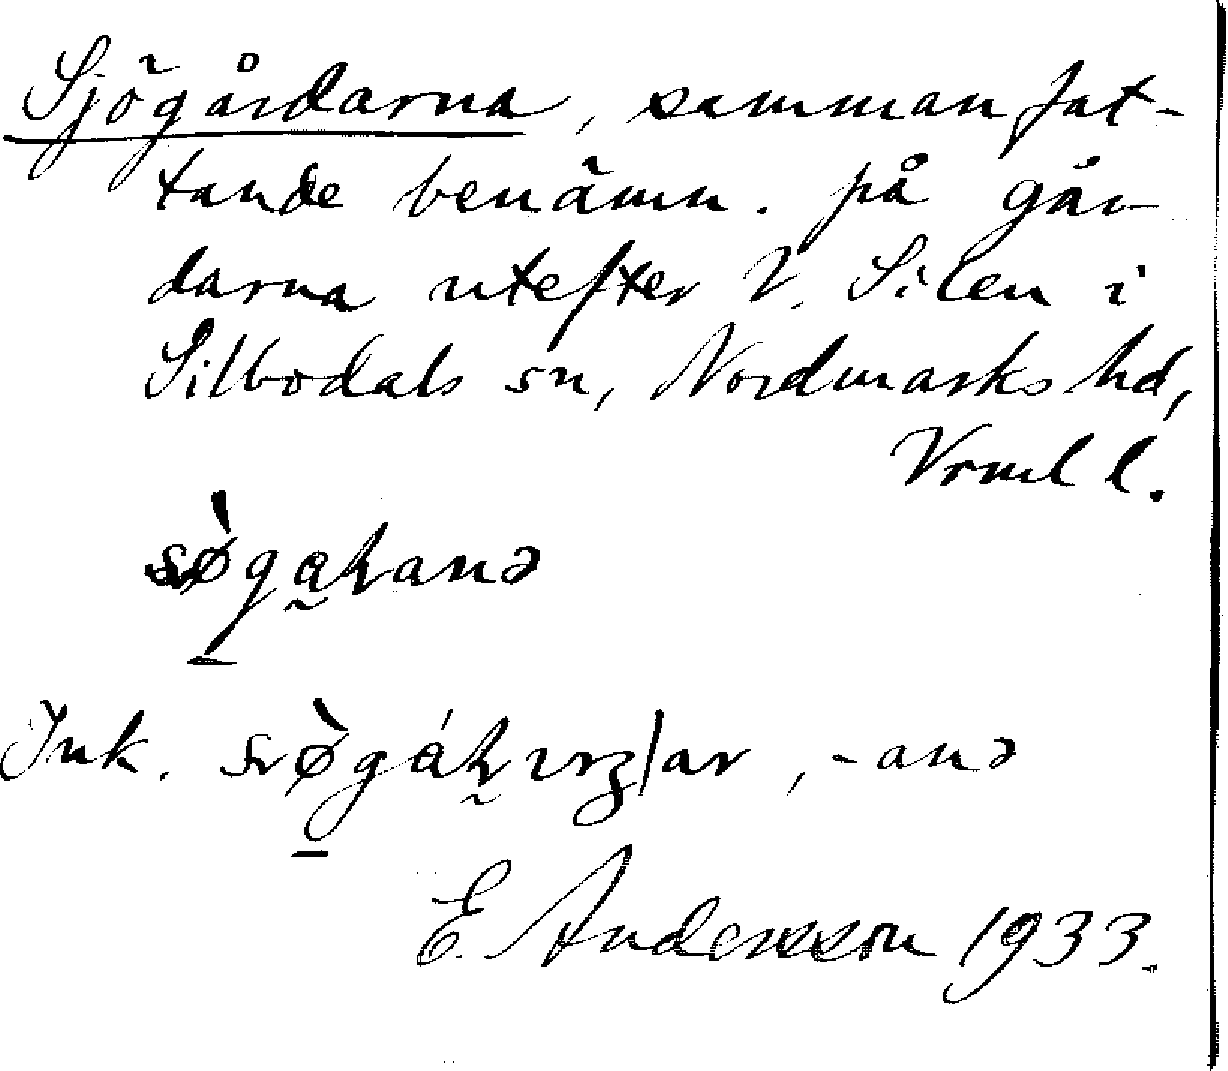 Sjögårdarna, sammanfat-
tande benämn. på går-
darna utefter V. Silen i
Silbodals sn, Nordmarks hd,
Vrml l.
Ink.
, -anə
E. Andersson 1933.